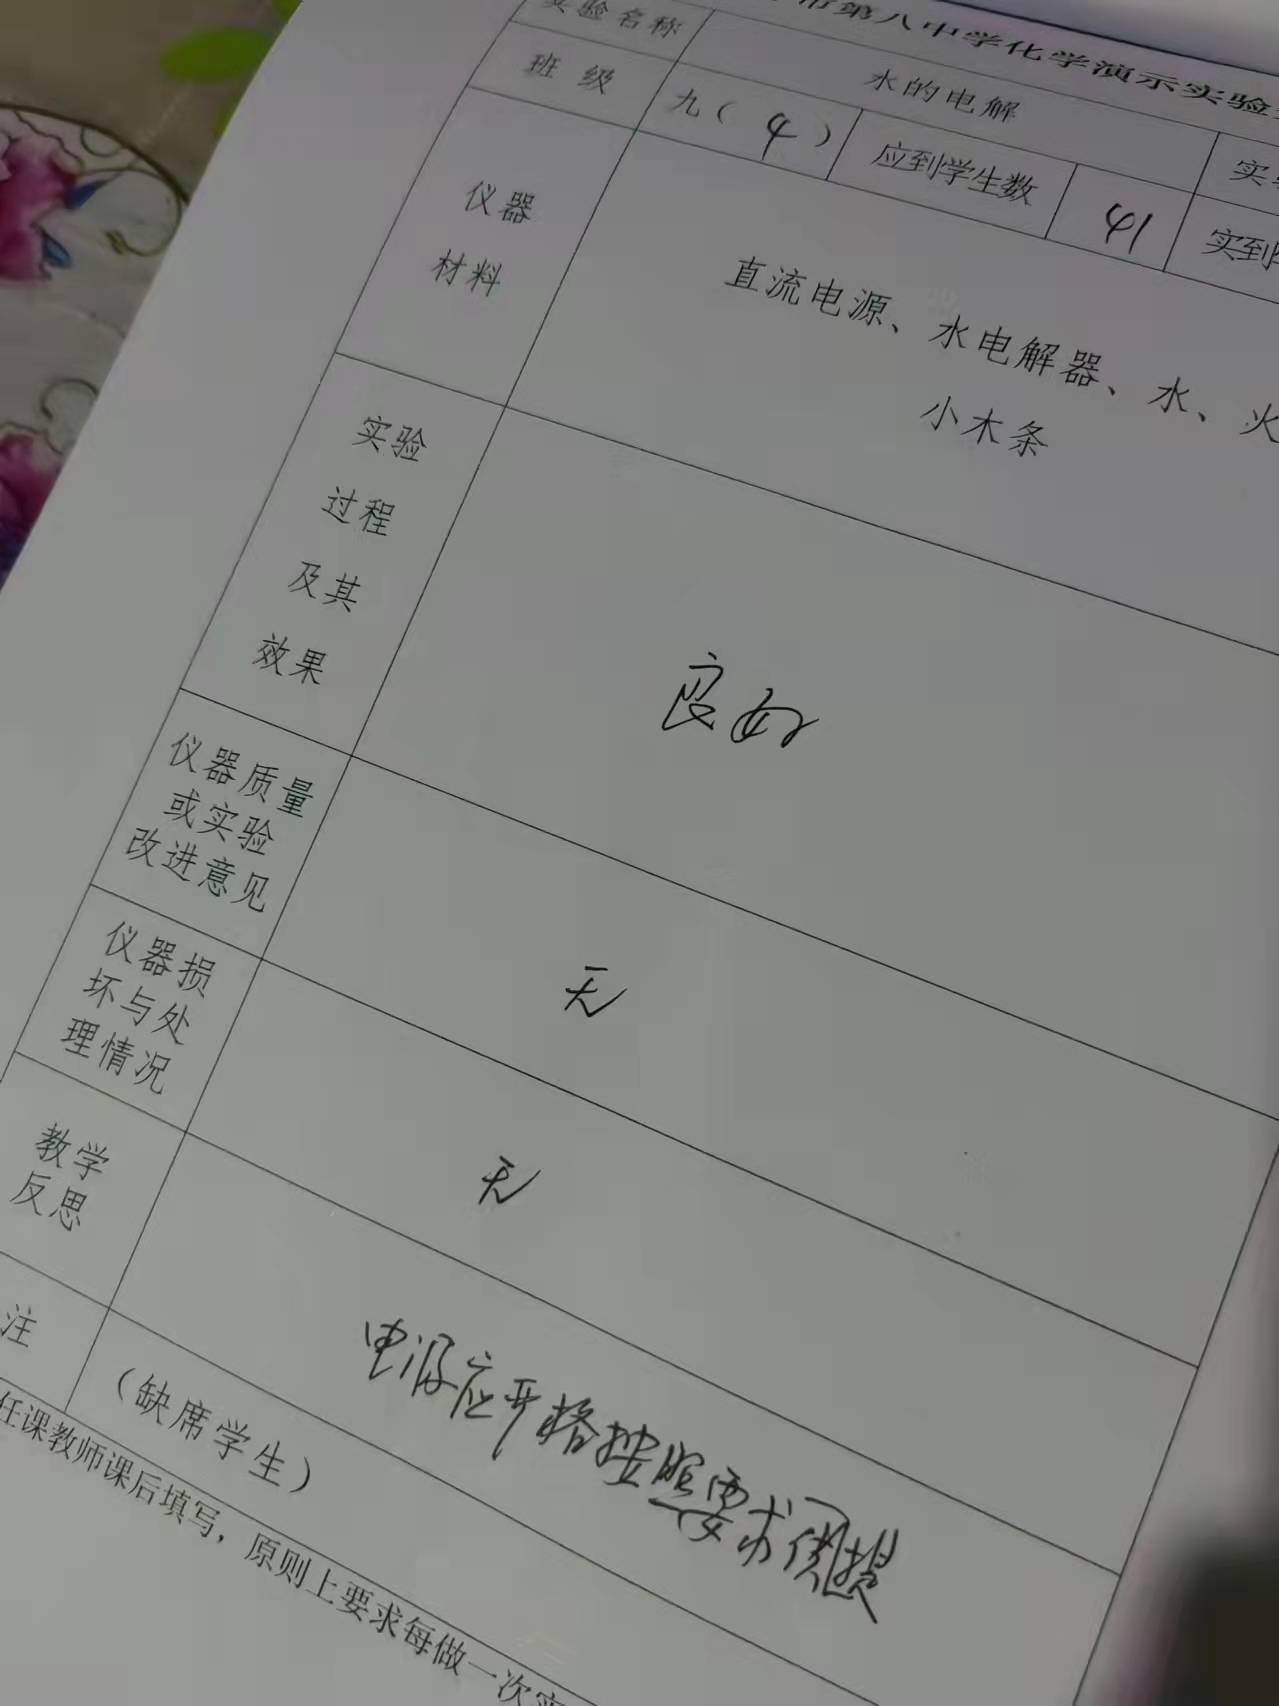 市第八中学化学演示实验
实验名称 水的电解
班级 九（4） 应到学生数 41 实到
仪器 材料 直流电源、水电解器、水、火
小木条
实验
过程
及其
效果
良好
仪器质量
或实验
改进意见
无
仪器损
坏与处
理情况
无
教学
反思
电源应严格按照要求
注 （缺席学生）
任课教师课后填写，原则上要求每做一次实